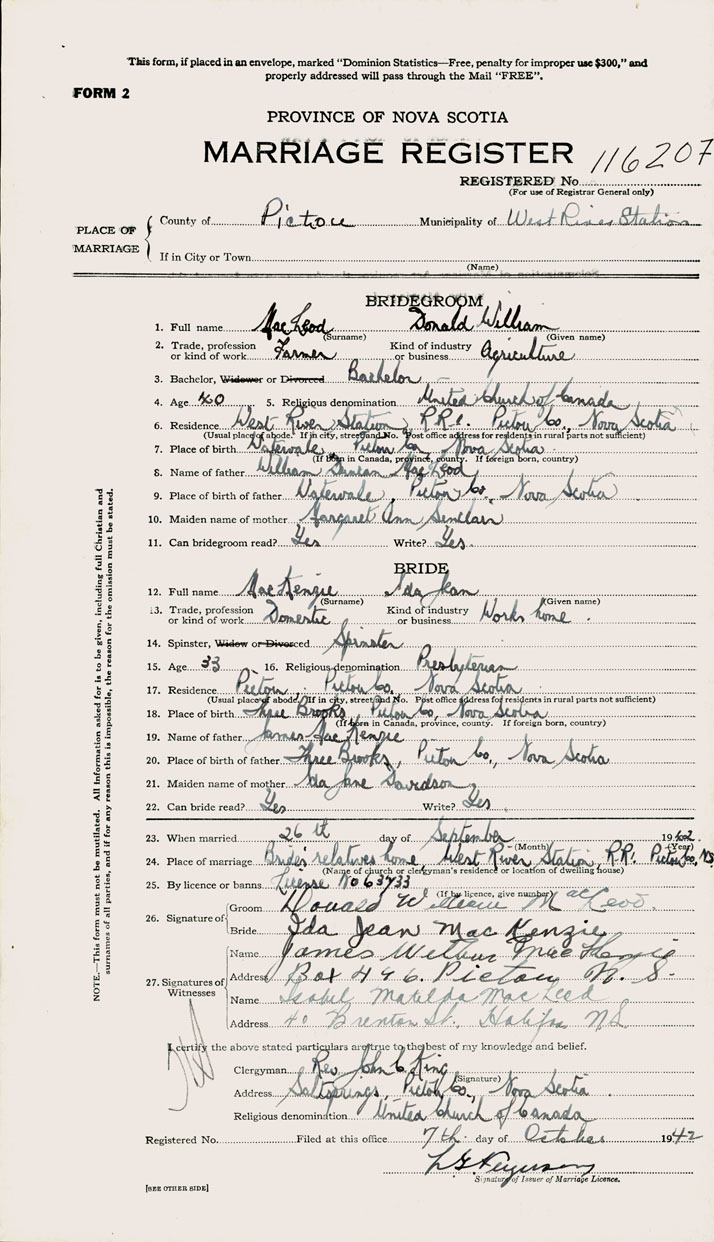 This form, if placed in an envelope, marked "Dominion Statistics—Free, penalty for improper use $300," and
properly addressed will pass through the Mail "FREE".
FORM 2
PROVINCE OF NOVA SCOTIA
MARRIAGE REGISTER 116207
REGISTERED No
(For use of Registrar General only)
PLACE OF MARRIAGE
County of Pictou Municipality of West River Station
If in City or Town
(Name)
BRIDEGROOM
1. Full name MacLeod Donald William
(Surname) (Given name)
2. Trade, profession or kind of work Farmer Kind of industry or business Agriculture
3. Bachelor, Widower or Divorced Bachelor
4. Age 40 5. Religious denomination United Church of Canada
6. Residence West River Station, R.R.1. Pictou Co., Nova Scotia
(Usual place of abode. If in city, street and No. Post office address for residents in rural parts not sufficient)
7. Place of birth Watervale, Pictou Co., Nova Scotia
(If Born in Canada, province, county. If foreign born, country)
8. Name of father William Duncan MacLeod
9. Place of birth of father Watervale, Pictou Co., Nova Scotia
10. Maiden name of mother Margaret Ann Senclair
11. Can bridegroom read? Yes Write? Yes.
BRIDE
12. Full name MacKenzie Ida Jean
(Surname) (Given name)
13. Trade, profession or kind of work Domestic Kind of industry or business Works home.
14. Spinster, Widow or Divorced Spinster
15. Age 33 16. Religious denomination Presbyterian
17. Residence Pictou, Pictou Co., Nova Scotia
(Usual place of abode. If in city, street and No. Post office address for residents in rural parts not sufficient)
18. Place of birth Three Brooks, Pictou Co., Nova Scotia
(If born in Canada, province, county. If foreign born, country)
19. Name of father James MacKenzie
20. Place of birth of father Three Brooks, Pictou Co., Nova Scotia
21. Maiden name of mother Ida Jane Davidson
22. Can bride read? Yes Write? Yes.
23. When married 26th day of September 1942
(Month) (Year)
24. Place of marriage Bride's relatives home, West River Station, R.R.1. Pictou Co., NS
(Name of church or clergyman's residence or location of dwelling house)
25. By licence or banns License No 63733
(If by licence, give number)
26. Signature of
Groom Donald William MacLeod.
Bride Ida Jean MacKenzie
27. Signatures of Witnesses
Name James Wilbur MacKenzie
Address Box 496. Pictou N. S.
Name Isobel Matilda MacLeod
Address 40 Brenton St., Halifax NS
I certify the above stated particulars are true to the best of my knowledge and belief.
Clergyman Rev. John C. King
(Signature)
Address Saltsprings, Pictou Co., Nova Scotia
Religious denomination United Church of Canada
Registered No. Filed at this office 7th day of October 1942
Ferguson
Signature of Issuer of Marriage Licence.
[SEE OTHER SIDE]
NOTE.—This form must not be mutilated. All information asked for is to be given, including full Christian and
surnames of all parties, and if for any reason this is impossible, the reason for the omission must be stated.